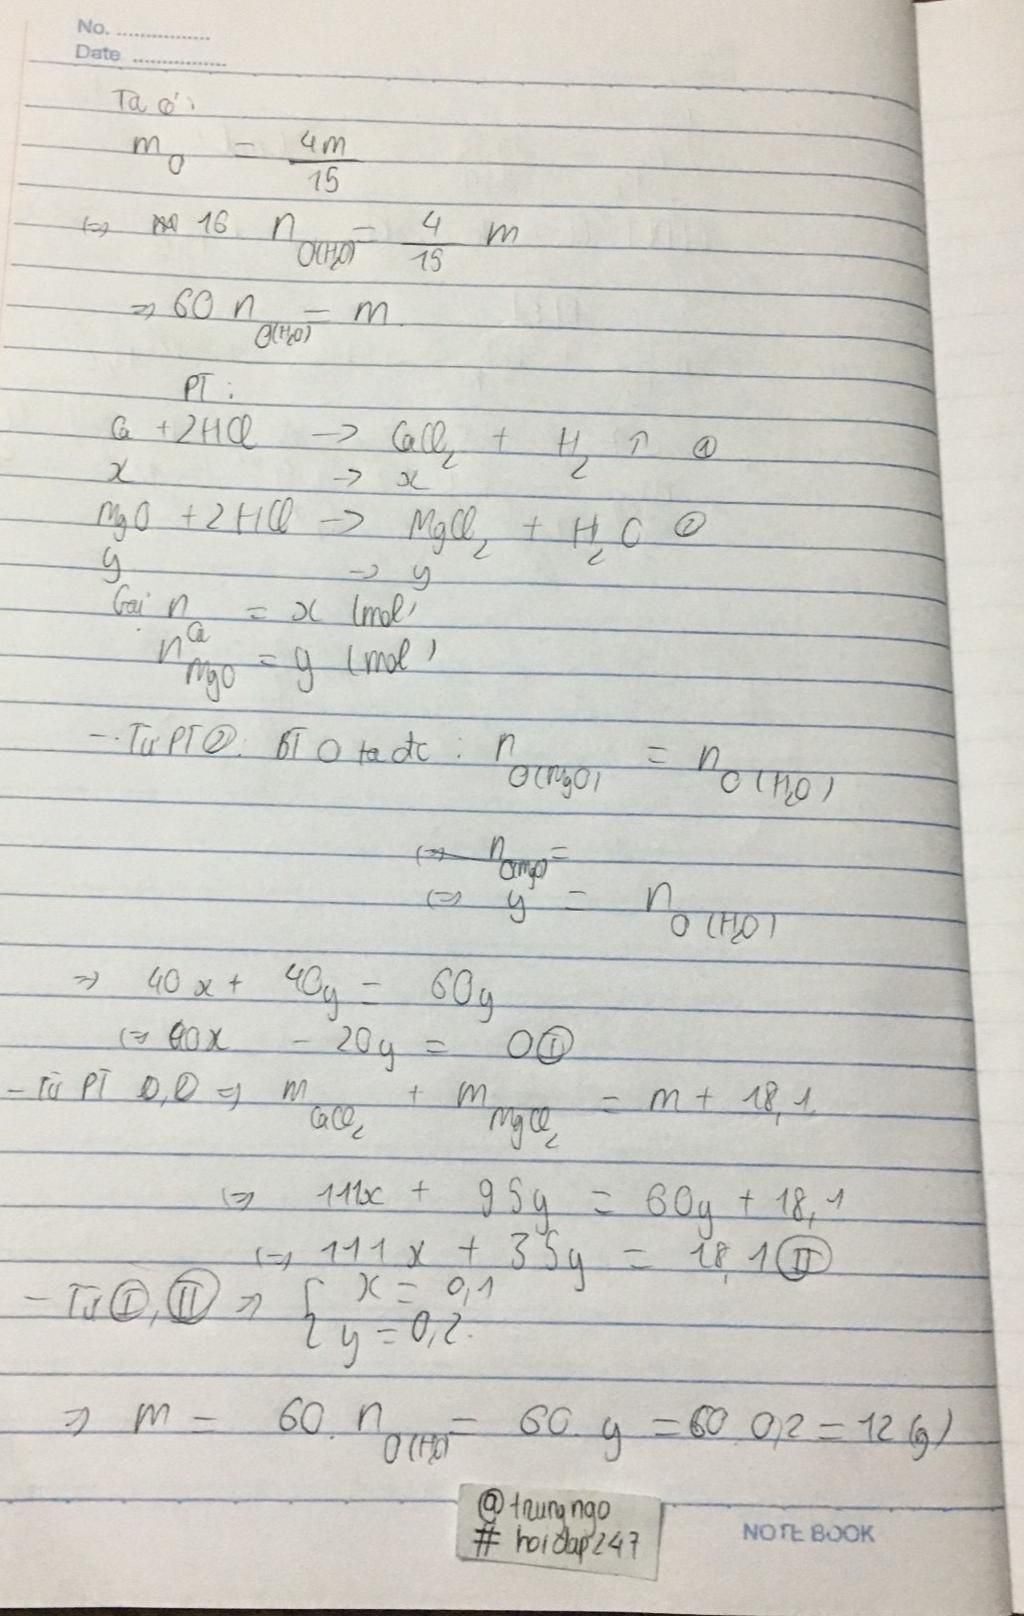 No. ................
Date ................
Ta có:
m_O = 4m/15
⇔ 16 n_O(H₂O) = 4/15 m
⇒ 60 n_O(H₂O) = m
PT:
Ca + 2HCl → CaCl₂ + H₂ ↑ ①
x → x
MgO + 2HCl → MgCl₂ + H₂O ②
y → y
Gọi n_Ca = x (mol)
n_MgO = y (mol)
- Từ PT②: BT O ta đc: n_O(MgO) = n_O(H₂O)
⇔ n_O(MgO) =
⇔ y = n_O(H₂O)
⇒ 40x + 40y = 60y
⇔ 40x - 20y = 0 Ⓘ
- Từ PT ①,② ⇒ m_CaCl₂ + m_MgCl₂ = m + 18,1
⇔ 111x + 95y = 60y + 18,1
⇔ 111x + 35y = 18,1 Ⓘⓘ
- Từ Ⓘ, Ⓘⓘ ⇒ { x = 0,1
y = 0,2.
⇒ m = 60. n_O(H₂O) = 60. y = 60. 0,2 = 12 (g)
@trungngo
# hoidap247
NOTE BOOK